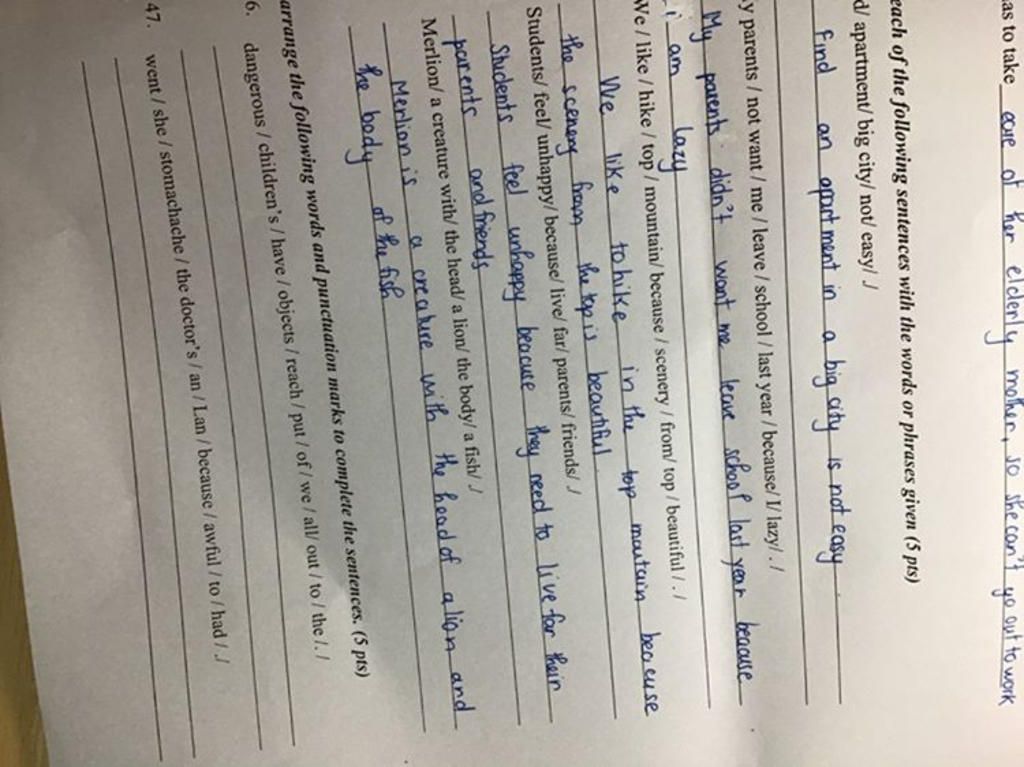 as to take care of her elderly mother, so she can't go out to work
each of the following sentences with the words or phrases given (5 pts)
d/ apartment/ big city/ not/ easy/ ./
Find an apartment in a big city is not easy.
y parents / not want / me / leave / school / last year / because/ I/ lazy/ . /
My parents didn't want me leave school last year because
i am lazy
We / like / hike / top / mountain/ because / scenery / from/ top / beautiful / . /
We like to hike in the top moutain because
the scenery from the top is beautiful.
Students/ feel/ unhappy/ because/ live/ far/ parents/ friends/ ./
Students feel unhappy beacuse they need to live far their
parents and friends
Merlion/ a creature with/ the head/ a lion/ the body/ a fish/ ./
Merlion is a creature with the head of a lion and
the body of the fish
arrange the following words and punctuation marks to complete the sentences. (5 pts)
6. dangerous / children's / have / objects / reach / put / of / we / all/ out / to / the /. /
47. went / she / stomachache / the doctor's / an / Lan / because / awful / to / had / ./